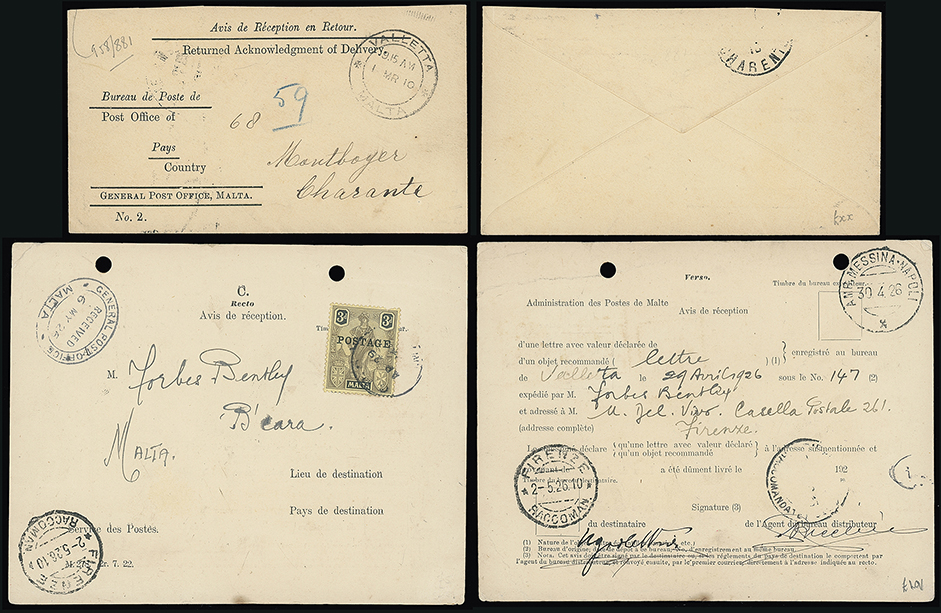 958/881
Avis de Réception en Retour.
Returned Acknowledgment of Delivery
VALLETTA
9.15 AM
1 MR 10
MALTA
Bureau de Poste de
Post Office of
59
68
Pays
Country
Montboyer
Charante
GENERAL POST OFFICE, MALTA.
No. 2.
CHARENTE
C.
Recto
Avis de réception.
GENERAL POST OFFICE
RECEIVED
6 MY 26
MALTA
3d
3d
POSTAGE
MALTA
M. Forbes Bentley
B'cara.
Malta.
Lieu de destination
Pays de destination
Service des Postes.
FIRENZE
2-5.26.10
RACCOMAN
7. 22.
Verso.
Timbre du bureau
AMB. MESSINA-NAPOLI
30.4.26
Administration des Postes de Malte
Avis de réception
d'une lettre avec valeur déclarée de
d'un objet recommandé ( lettre ) (1) enregistré au bureau
de Valletta le 29 Avril 1926 sous le No. 147 (2)
expédié par M. Forbes Bentley
et adressé à M. Casella Postale 261.
(adresse complète) Firenze.
déclare qu'une lettre avec valeur déclaré à l'adresse susmentionée et
qu'un objet recommandé
a été dûment livré le 192
FIRENZE
2-5.26.10
RACCOMAN
Signature (3)
du destinataire de l'Agent du bureau distributeur
(1) Nature de l'objet etc.)
(2) Bureau d'origine; date de dépôt à ce bureau; No. d'enregistrement au même bureau.
(3) Nota. Cet avis doit être signé par le destinataire ou, si les règlements du pays de destination le comportent par
l'agent du bureau distributeur, et renvoyé ensuite, par le premier courrier, directement à l'adresse indiquée au recto.